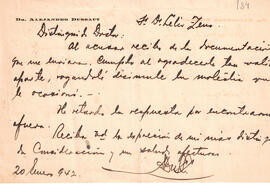 184
Dr. Alejandro Dussaut
Sr. Dr. Felix Zeus
Distinguido Doctor:
Al acusar recibo de la documentación
que me enviara. Cumplo al agradecerle tan valioso
aporte, rogandole disimule la molestia que
le ocasioné.
He retardado la respuesta por encontrarme
afuera. Reciba Ud la expresión de mi más distinguida
consideración y un saludo afectuoso
20 Enero 942.